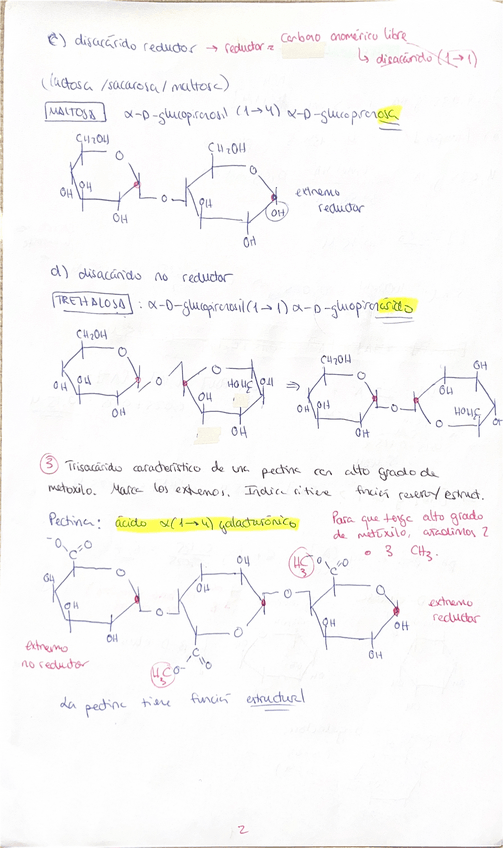 c) disacárido reductor → reductor = carbono anomérico libre
↳ disacárido (1→1)
(lactosa / sacarosa / maltosa)
MALTOSA α-D-glucopiranosil (1→4) α-D-glucopiranosa
CH₂OH CH₂OH
O O
OH OH O OH OH extremo
OH OH reductor
d) disacárido no reductor
TREHALOSA : α-D-glucopiranosil (1→1) α-D-glucopiranósido
CH₂OH CH₂OH OH
O O O OH
OH OH O HOH₂C OH ⇒ OH OH O HOH₂C
OH OH OH OH O
③ Trisacárido característico de una pectina con alto grado de
metoxilo. Marca los extremos. Indica si tiene función reserva/estruct.
Pectina: ácido α(1→4) galacturónico
Para que tenga alto grado
de metoxilo, añadimos 2
o 3 CH₃.
⁻O C O OH H₃C O C O
OH O OH O O
OH O OH OH extremo
OH O OH reductor
extremo
no reductor
H₃C O⁻ C O
La pectina tiene función estructural
2